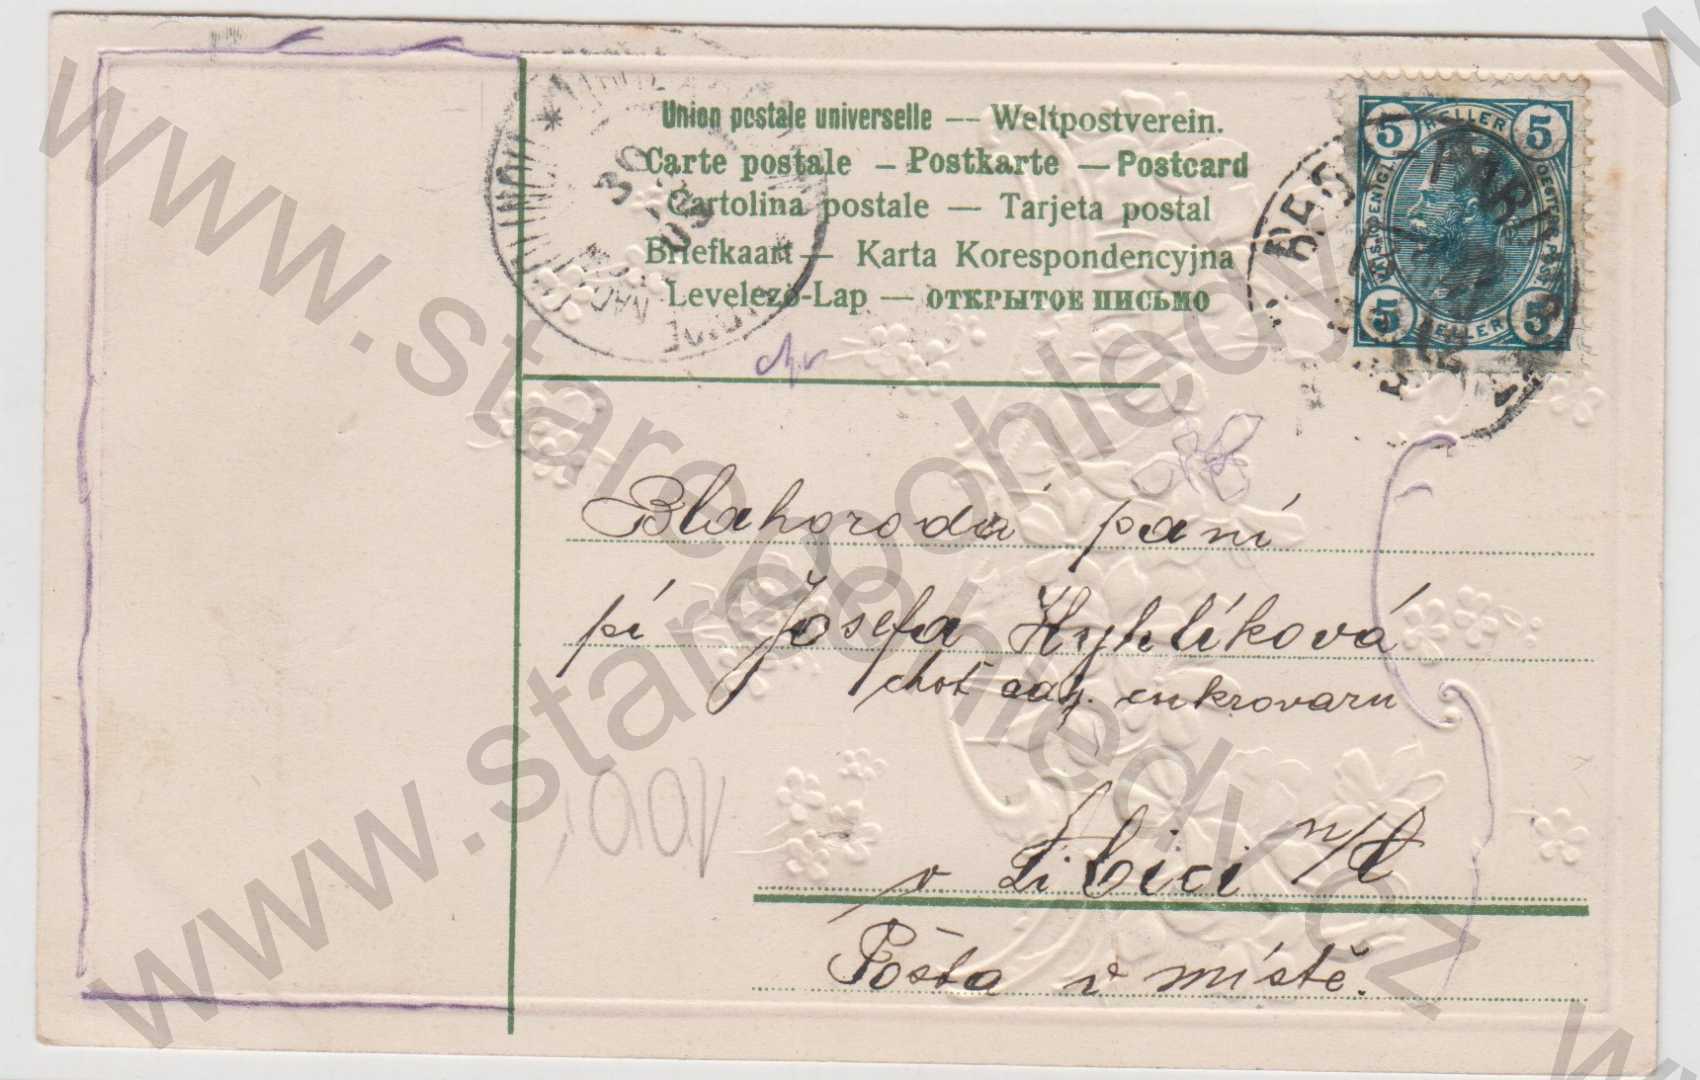 Union postale universelle — Weltpostverein.
Carte postale – Postkarte — Postcard
Cartolina postale — Tarjeta postal
Briefkaart — Karta Korespondencyjna
Levelező-Lap — ОТКРЫТОЕ ПИСЬМО
5 HELLER 5
5 HELLER 5
30
03
Blahorodá paní
pí Josefa Hyhlíková
choť adj. cukrovaru
v Libici n/C
Pošta v místě.
www.starepohledy.cz
www.starepohledy.cz